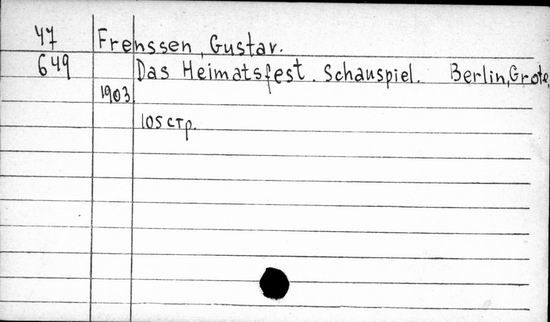 47 Frenssen, Gustav.
649 Das Heimatsfest. Schauspiel. Berlin, Grote,
1903
105 стр.